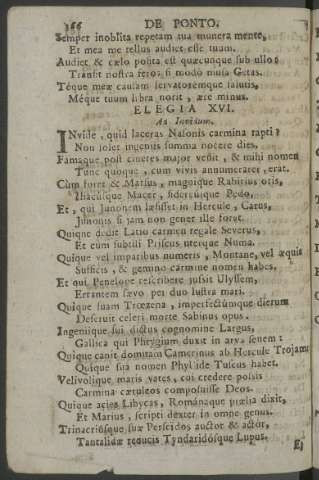 166 DE PONTO.
Semper inoblita repetam tua munera mente,
Et mea me tellus audiet esse tuum.
Audiet & cælo posita est quæcunque sub ullo:
Transit nostra feros, si modo musa Getas.
Téque meæ causam servatoremque salutis,
Méque tuum libra norit, ære minus.
ELEGIA XVI.
Ad Invidum.
INvide, quid laceras Nasonis carmina rapti?
Non solet ingeniis summa nocere dies,
Famaque post cineres major venit, & mihi nomen
Tunc quoque, cum vivis annumerarer, erat.
Cùm foret & Marsus, magnique Rabirius oris,
Iliacusque Macer, sidereusque Pedo,
Et, qui Junonem læsisset in Hercule, Carus,
Junonis si jam non gener ille foret.
Quique dedit Latio carmen regale Severus,
Et cum subtili Priscus uterque Numa.
Quique vel imparibus numeris, Montane, vel æquis
Sufficis, & gemino carmine nomen habes,
Et qui Penelope rescribere jussit Ulyssem,
Errantem sævo per duo lustra mari.
Quique suam Troezena, imperfectúmque dierum
Deseruit celeri morte Sabinus opus.
Ingeniique sui dictus cognomine Largus,
Gallica qui Phrygium duxit in arva senem:
Quique canit domitam Camerinus ab Hercule Trojam;
Quique sua nomen Phyllide Tuscus habet.
Velivolique maris vates, cui credere possis
Carmina cæruleos composuisse Deos.
Quique acies Libycas, Romanaque prælia dixit,
Et Marius, scripti dexter in omne genus.
Trinacriúsque suæ Perseidos auctor & actor,
Tantalidæ reducis Tyndaridósque Lupus.
Et